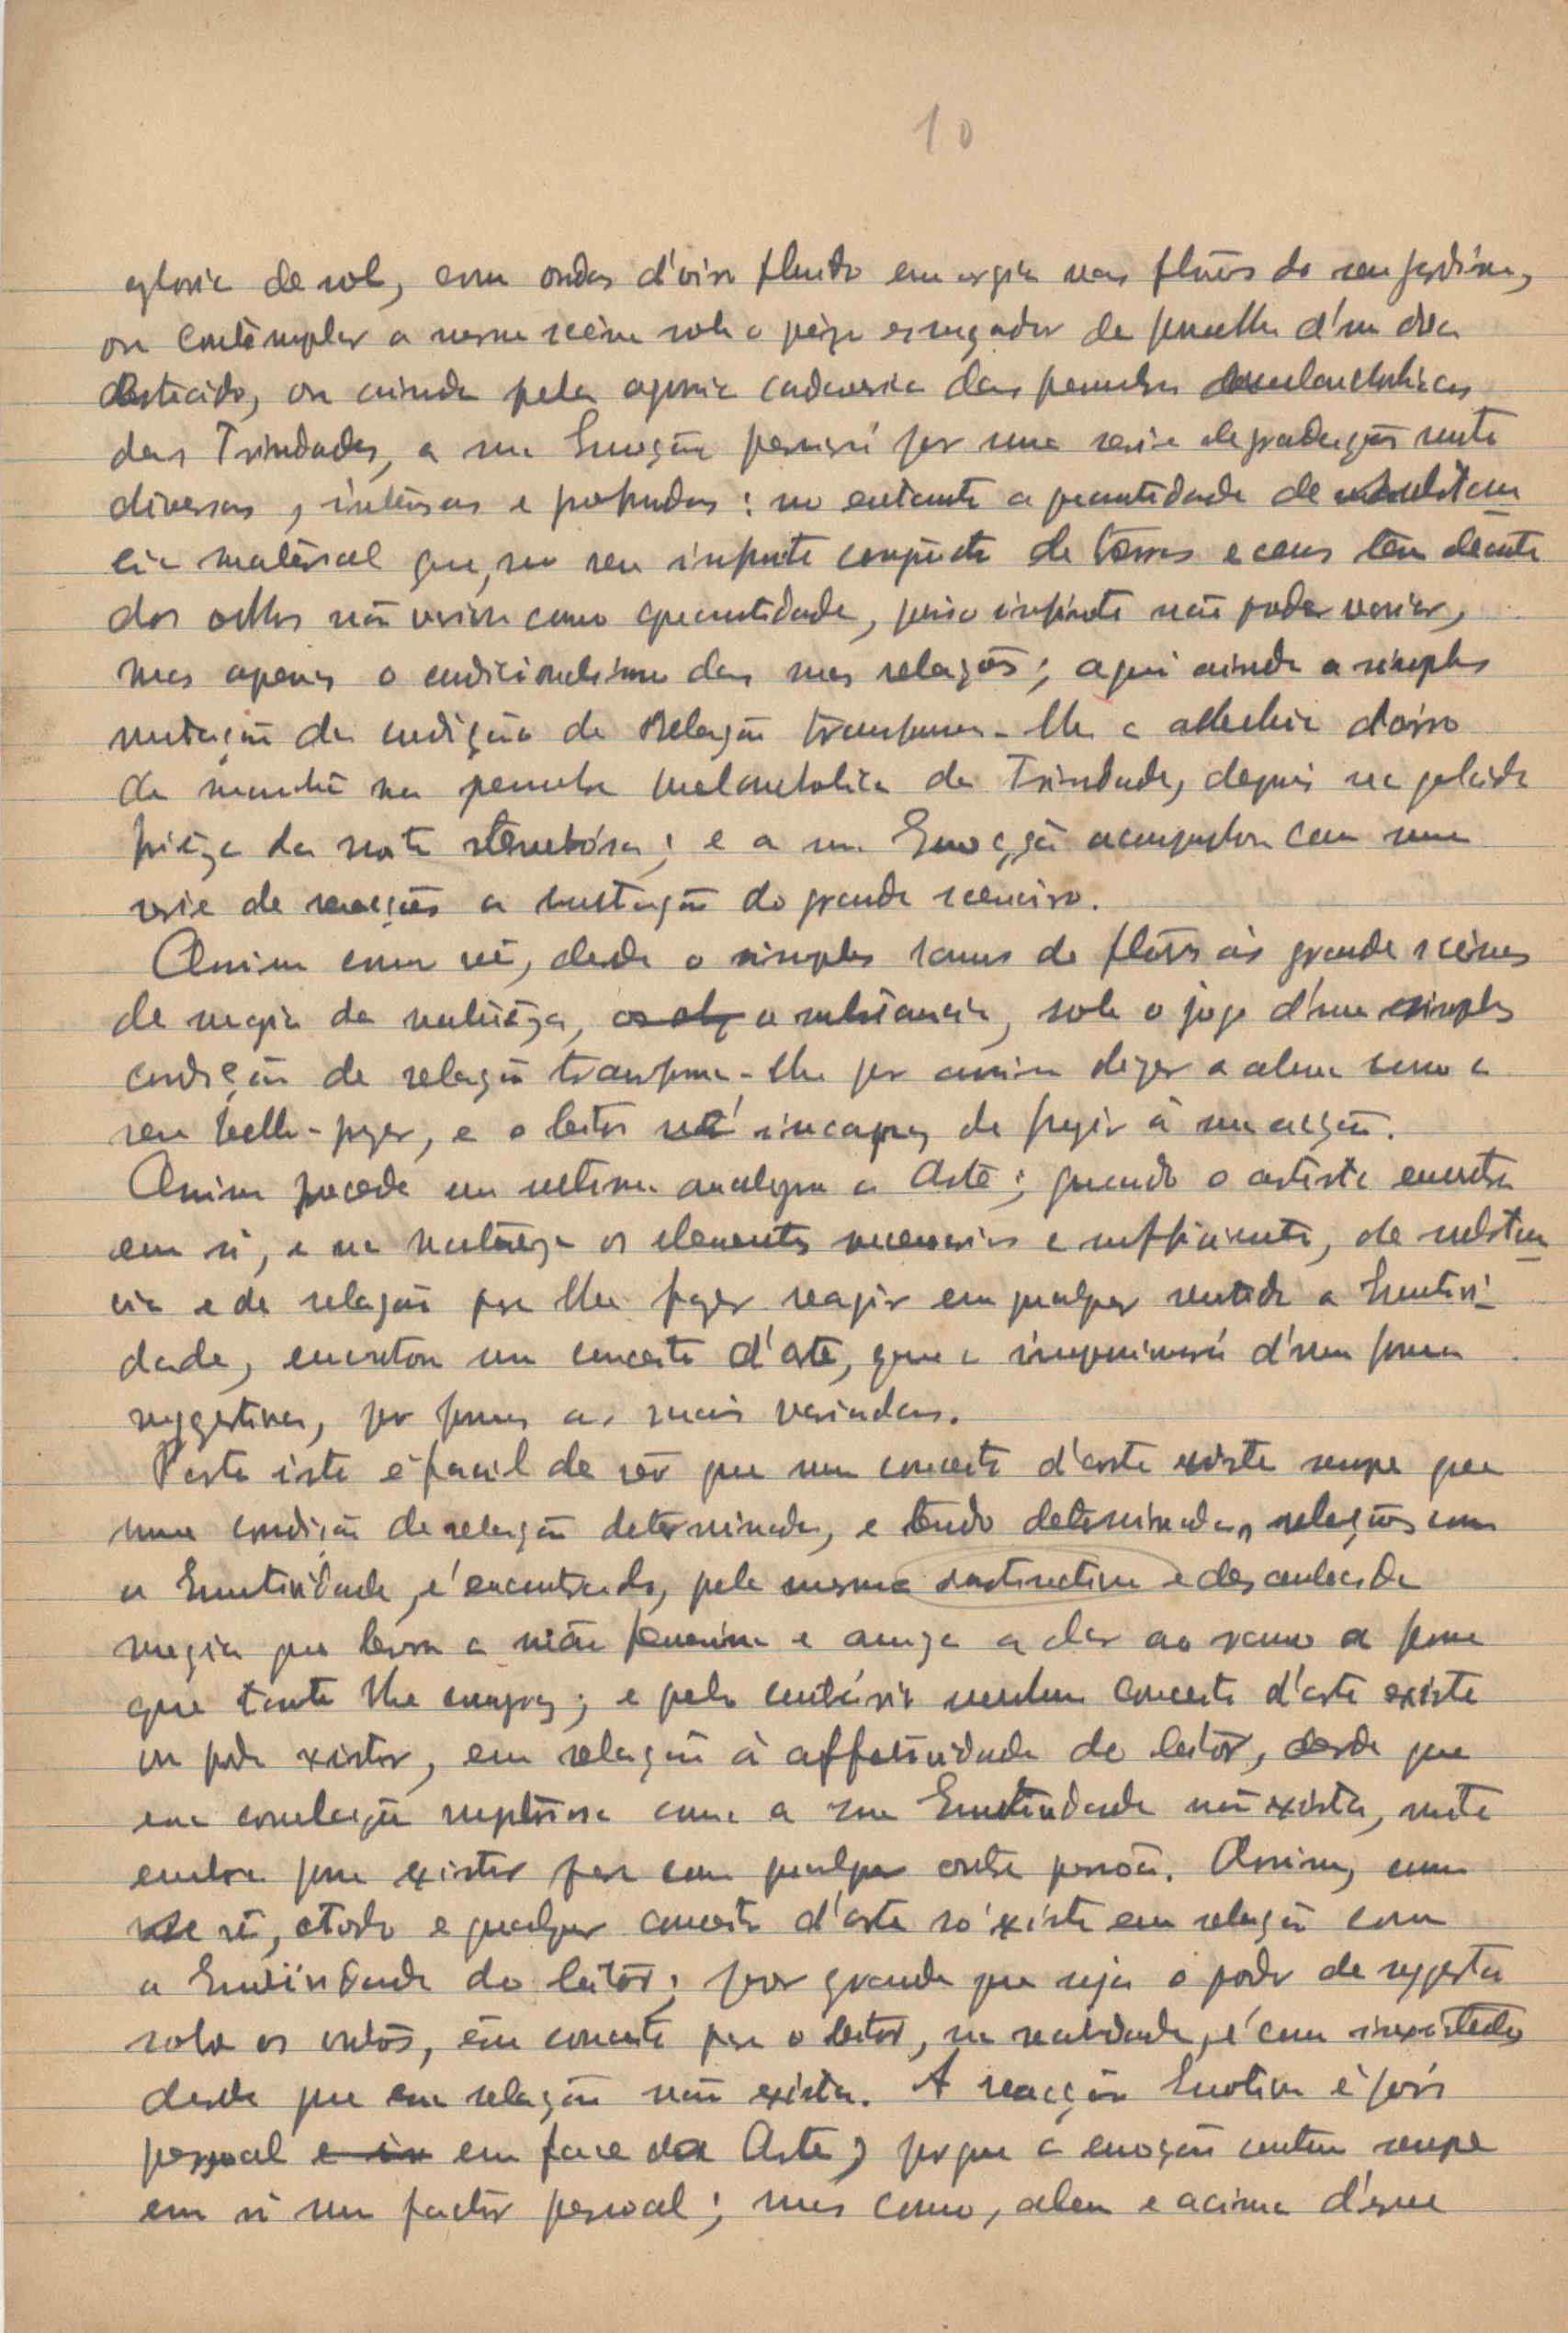 10
gloria de sol, com ondas d'oiro fluido em orgia nas flôres do seu jardim,
ou contemplar a mesma scêna sob o pêzo esmagador da d'um dia
ou ainda pela agonia cadaverica das penumbras melancholicas
das Trindades, a sua Emoção passará por uma serie de gradações muito
diversas, intensas e profundas: no entanto a quantidade de substan
cia material que, no seu infinito conjuncto de terras e ceus tem deante
dos olhos não varia como quantidade, pois o infinito não poder variar,
mas apenas o condicionalismo das suas relações; aqui ainda a simples
mutação da condição de Relação transforma-lhe a d'oiro
da manhã na penumbra melancholica da Trindade, depois na gelida
frièza da noite tenebrósa; e a sua Emoção acompanhou com uma
serie de reacções a mutação do grande scenario.
Assim como vê, desde o simples ramo de flôres ás grandes scênas
de magia da naturêza, a substancia, sob o jogo d'uma simples
condição de relação transforma-lhe por assim dizer a alma como a
seu bello-prazer, e o leitor é incapaz de fugir á sua acção.
Assim procede um sistema analogo a Arte; quando o artista encontra
em si, e na Naturêza os elementos necessarios e sufficientes, de substan
cia e de relação para lhe fazer reagir em qualquer sentido a Emotivi-
dade, encontrou um conceito d'arte, que exprimirá d'uma forma
suggestiva, por formas as mais variadas.
Posto isto é facil de vêr que um conceito d'arte existe sempre que
uma condição de relação determinada, e tendo determinadas relações com
a Emotividade, é encontrada, pela mesma instinctiva e desconhecida
magia que levou a mão femenina e amiga a dar ao ramo a forma
que tanto lhe ; e pelo contrário nenhum conceito d'arte existe
ou póde existir, em relação á affectividade do leitor, desde que
essa correlação mysteriosa com a sua Emotividade não exista, muito
embora possa existir para com qualquer outra pessôa. Assim, como
se vê, todo e qualquer conceito d'arte só existe em relação com
a Emotividade do leitor; por grande que seja o poder de suggestão
sobre os outros, êsse conceito para o leitor, na realidade, é como inexistente
desde que essa relação não exista. A reacção Emotiva é pois
pessoal em face da Arte, porque a emoção contem sempre
em si um factor pessoal; mas como, alem e acima d'esse